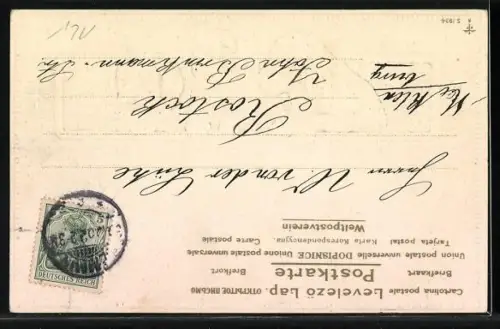 Cartolina postale Levelező Lap. ОТКРЫТОЕ ПИСЬМО Brefkort
Briefkaart Postkarte Brefkort
Union postale universelle DOPISNICE Unione postale universale
Tarjeta postal Karta Korrespondencyjna. Carte postale
Weltpostverein
Herrn W. von der Lühe
Rostock
Meklen
burg
John Brinkmann-Str.
DEUTSCHES REICH